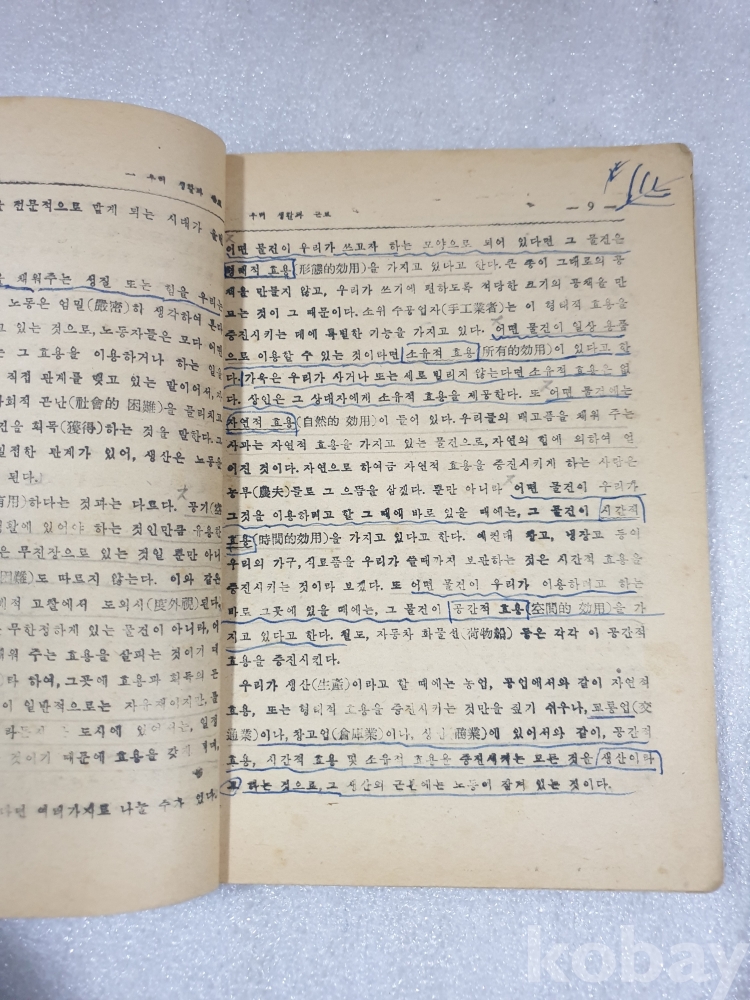 을 전문적으로 맡게 되는 시대가
을 채워주는 성질 또는 힘을 우리는
노동은 엄밀(嚴密)히 생각하여 본다
고 있는 것으로, 노동자들은 모다 어떤
는 그 효용을 이용하거나 하는 일을
직접 관계를 맺고 있는 말이어서, 자
사회적 곤난(社會的 困難)을 물리치고
진을 획득(獲得)하는 것을 말한다. 그
일정한 관계가 있어, 생산은 노동을
된다.
有用)하다는 것과는 다르다. 공기(空
에 있어야 하는 것인만큼 유용한
은 무진장으로 있는 것일 뿐만 아니
困難)도 따르지 않는다. 이와 같은
제적 고찰에서 도외시(度外視)된다.
는 무한정하게 있는 물건이 아니라, 어
채워 주는 효용을 살피는 것이기 때
타 하여, 그곳에 효용과 획득의 곤
이 일반적으로는 자유재이지만, 물
도시에 있어서는, 일정
것이기 때문에 효용을 갖지
다면 여러가지로 나눌 수가 있다.
우리 생활과 근로
— 9 —
어떤 물건이 우리가 쓰고자 하는 모양으로 되어 있다면 그 물건은
형태적 효용(形態的効用)을 가지고 있다고 한다. 큰 종이 그대로의 공
책을 만들지 않고, 우리가 쓰기에 편하도록 적당한 크기의 공책을 만
드는 것이 그 때문이다. 소위 수공업자(手工業者)는 이 형태적 효용을
증진시키는 데에 특별한 기능을 가지고 있다. 어떤 물건이 일상 용품
으로 이용할 수 있는 것이라면 소유적 효용(所有的効用)이 있다고 한
다. 가옥은 우리가 사거나 또는 세로 빌리지 않는다면 소유적 효용은 없
다. 상인은 그 상대자에게 소유적 효용을 제공한다. 또 어떤 물건에는
자연적 효용(自然的 効用)이 들어 있다. 우리들의 배고픔을 채워 주는
사과는 자연적 효용을 가지고 있는 물건으로, 자연의 힘에 의하여 얻
어진 것이다. 자연으로 하여금 자연적 효용을 증진시키게 하는 사람은
농부(農夫)들로 그 으뜸을 삼겠다. 뿐만 아니라 어떤 물건이 우리가
그것을 이용하려고 할 그 때에 바로 있을 때에는, 그 물건이 시간적
효용(時間的効用)을 가지고 있다고 한다. 예컨대 창고, 냉장고 등이
우리의 가구, 식료품을 우리가 쓸때까지 보관하는 것은 시간적 효용을
증진시키는 것이라 보겠다. 또 어떤 물건이 우리가 이용하려고 하는
바로 그곳에 있을 때에는, 그 물건이 공간적 효용(空間的 効用)을 가
지고 있다고 한다. 철도, 자동차 화물선(荷物船) 등은 각각 이 공간적
효용을 증진시킨다.
우리가 생산(生産)이라고 할 때에는 농업, 공업에서와 같이 자연적
효용, 또는 형태적 효용을 증진시키는 것만을 짚기 쉬우나, 교통업(交
通業)이나, 창고업(倉庫業)이나, 상업(商業)에 있어서와 같이, 공간적
효용, 시간적 효용 및 소유적 효용을 증진시키는 모든 것을 생산이라
고 하는 것으로, 그 생산의 근본에는 노동이 잠겨 있는 것이다.
kobay